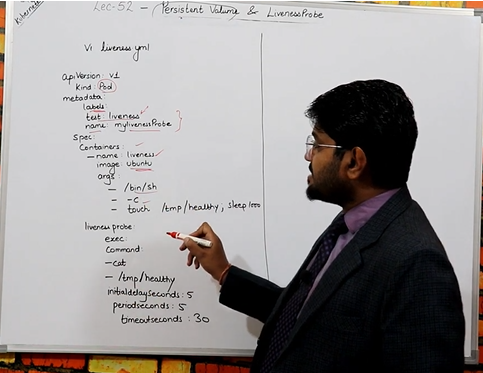 Kubernet
Lec-52 - Persistent Volume & LivenessProbe
Vi liveness yml
apiVersion: v1
kind: Pod
metadata:
labels:
test: liveness
name: mylivenessProbe
Spec:
Containers:
- name: liveness
image: ubuntu
args:
- /bin/sh
- -c
- touch /tmp/healthy; sleep 1000
liveness probe:
exec:
Command:
- cat
- /tmp/healthy
initialdelayseconds: 5
periodseconds: 5
timeoutseconds: 30